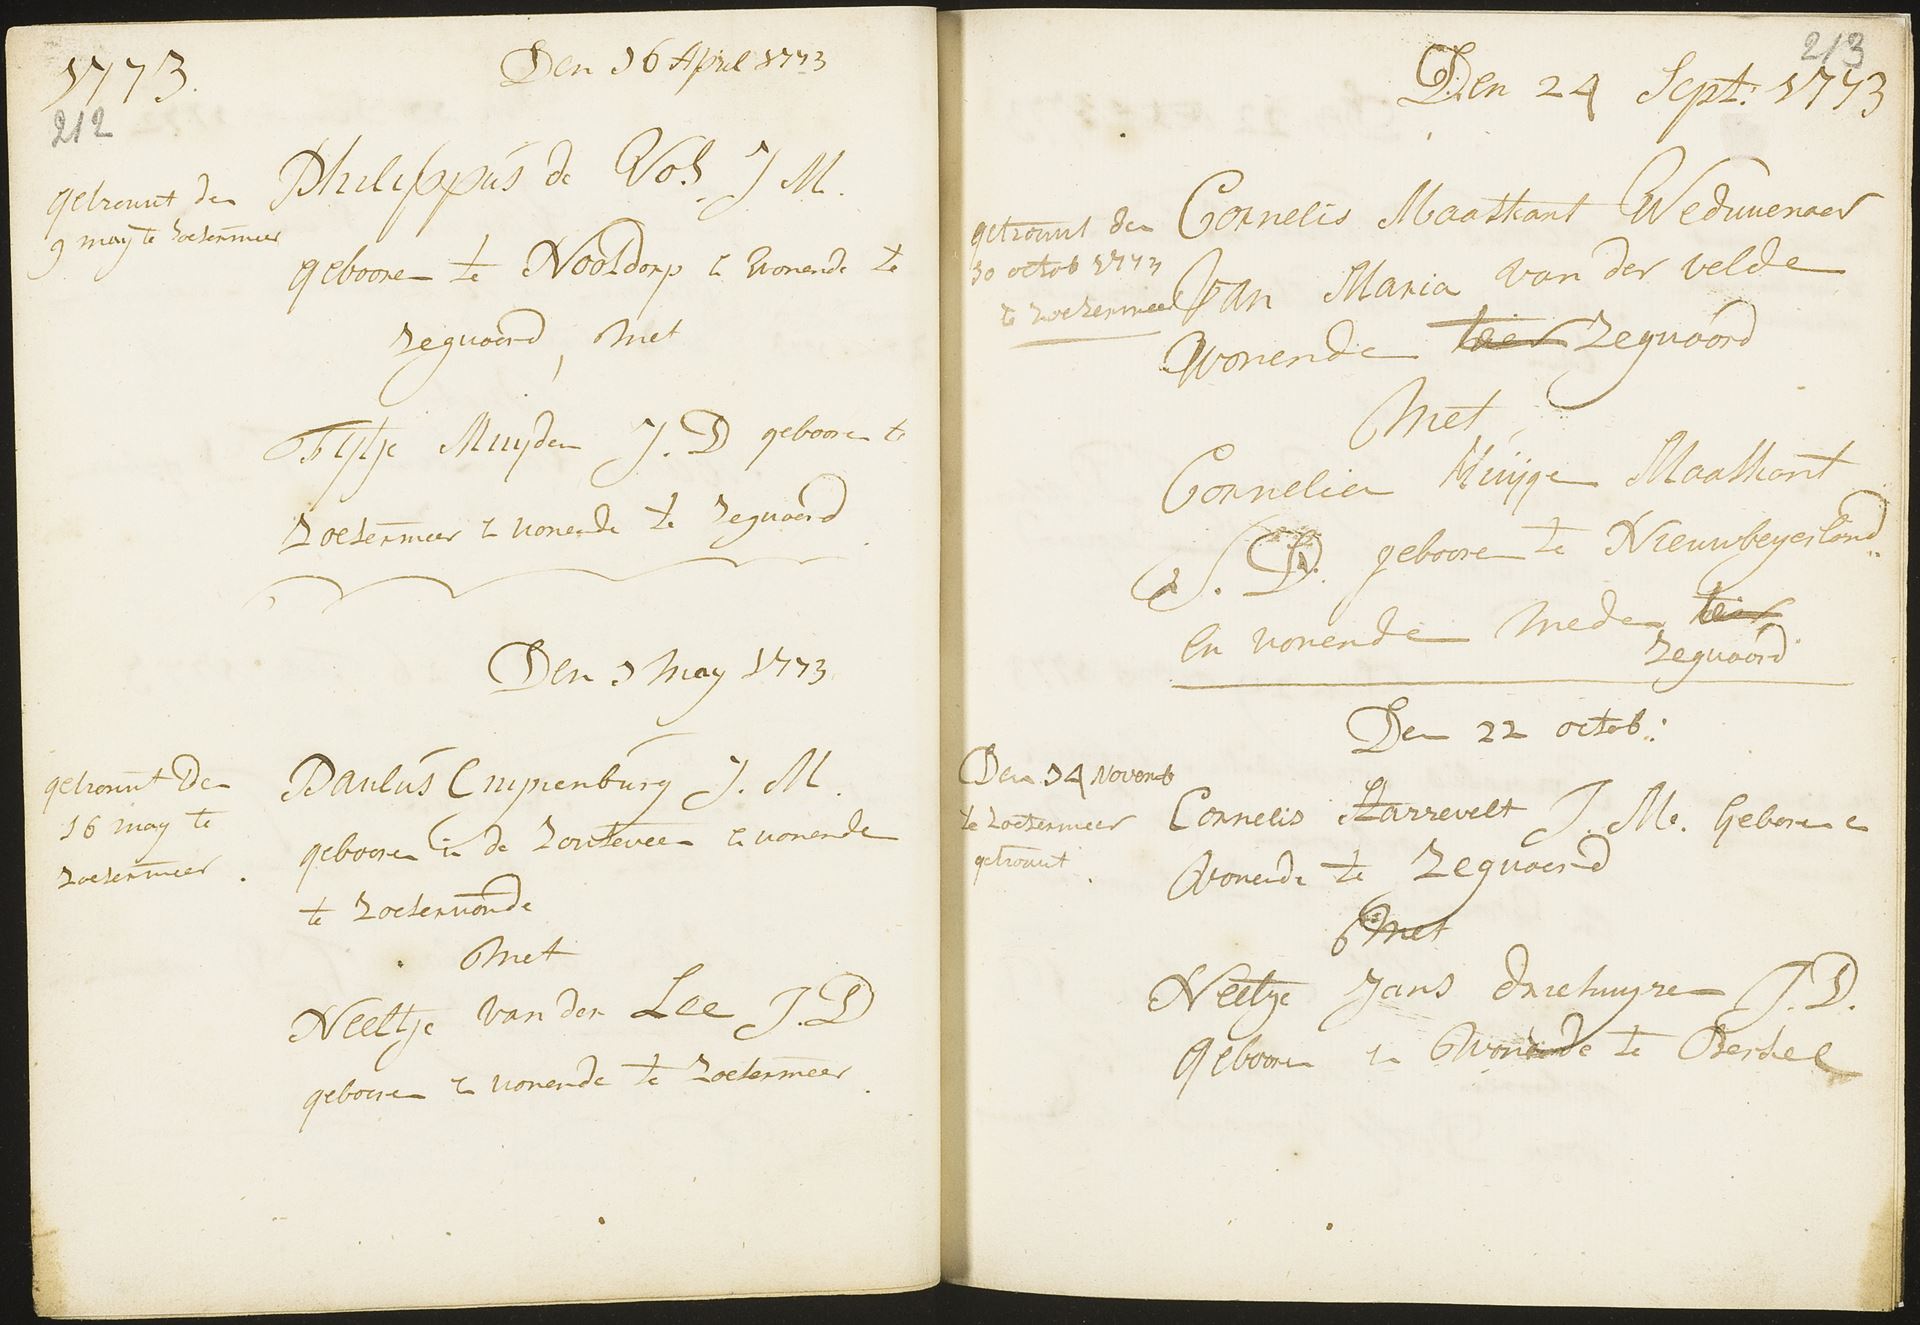 1773.
212
Den 16 April 1773
getrouwt den
9 may te Zoetermeer
Philippus de Vos. J M.
gebooren te Nootdorp & wonende te
Zegwaard, met
Fijtje Muijden J. D gebooren te
Zoetermeer & wonende te Zegwaard
Den 1 may 1773
getrouwt Den
16 may te
Zoetermeer.
Paulus Cuipenburg J. M.
gebooren in de Zouteveen & wonende
te Zoeterwoude
met
Neeltje van der Lee J. D
gebooren & wonende te Zoetermeer.
213
Den 24 Sept: 1773
getrouwt den
10 octob 1773
te Zoetermeer
Cornelis Maaskant Weduwenaer
Van Maria van der velde
Wonende Zegwaard
Met
Cornelia Huijge Maaskant
J. D. gebooren te Nieuwbeyerland
En wonende mede
Zegwaard
Den 22 octob:
Den 14 Novemb
te Zoetermeer
getrouwt.
Cornelis Starrevelt J. M. Geboren en
Wonende te Zegwaard
Met
Neeltje Jans Driehuyzen J. D.
gebooren en Wonende te Berkel